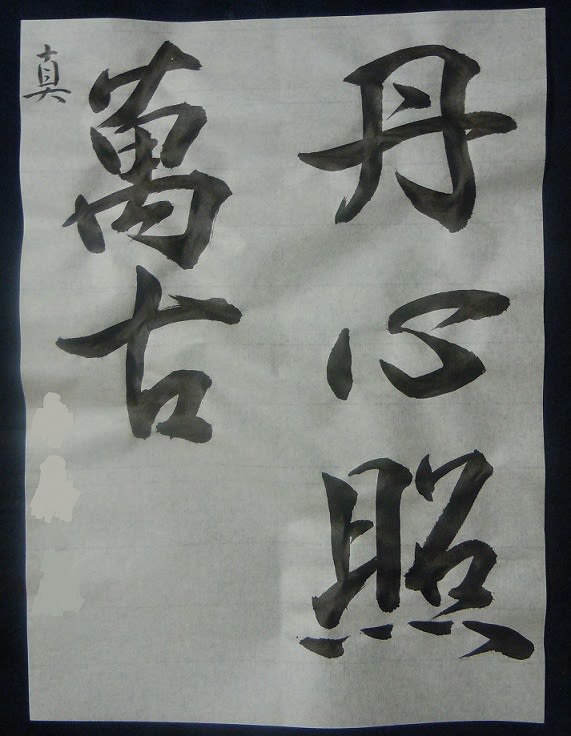 丹心照
萬古
真